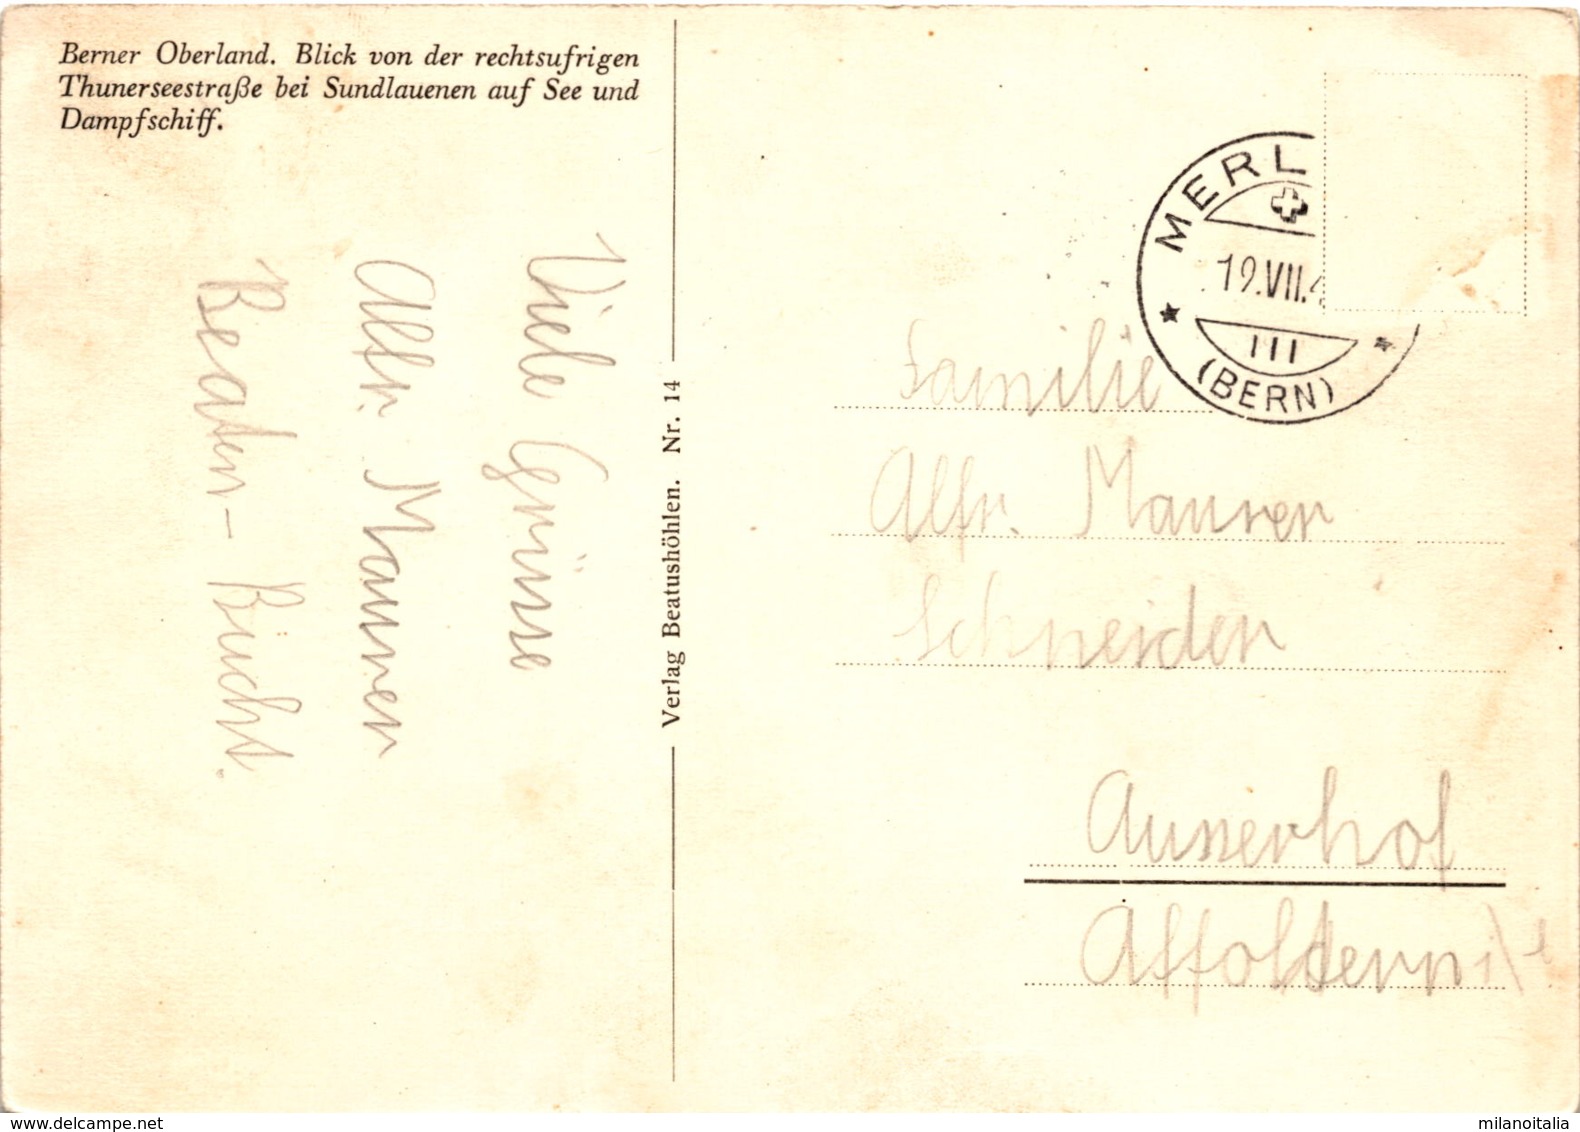 Berner Oberland. Blick von der rechtsufrigen
Thunerseestraße bei Sundlauenen auf See und
Dampfschiff.
Viele Grüsse
Alfr. Maurer
Beaten-Bucht.
Verlag Beatushöhlen. Nr. 14
MERL
19.VII.4
III
(BERN)
Familie
Alfr. Maurer
Schneider
Ausserhof
Affoltern i/E
delcampe.net
milanoitalia